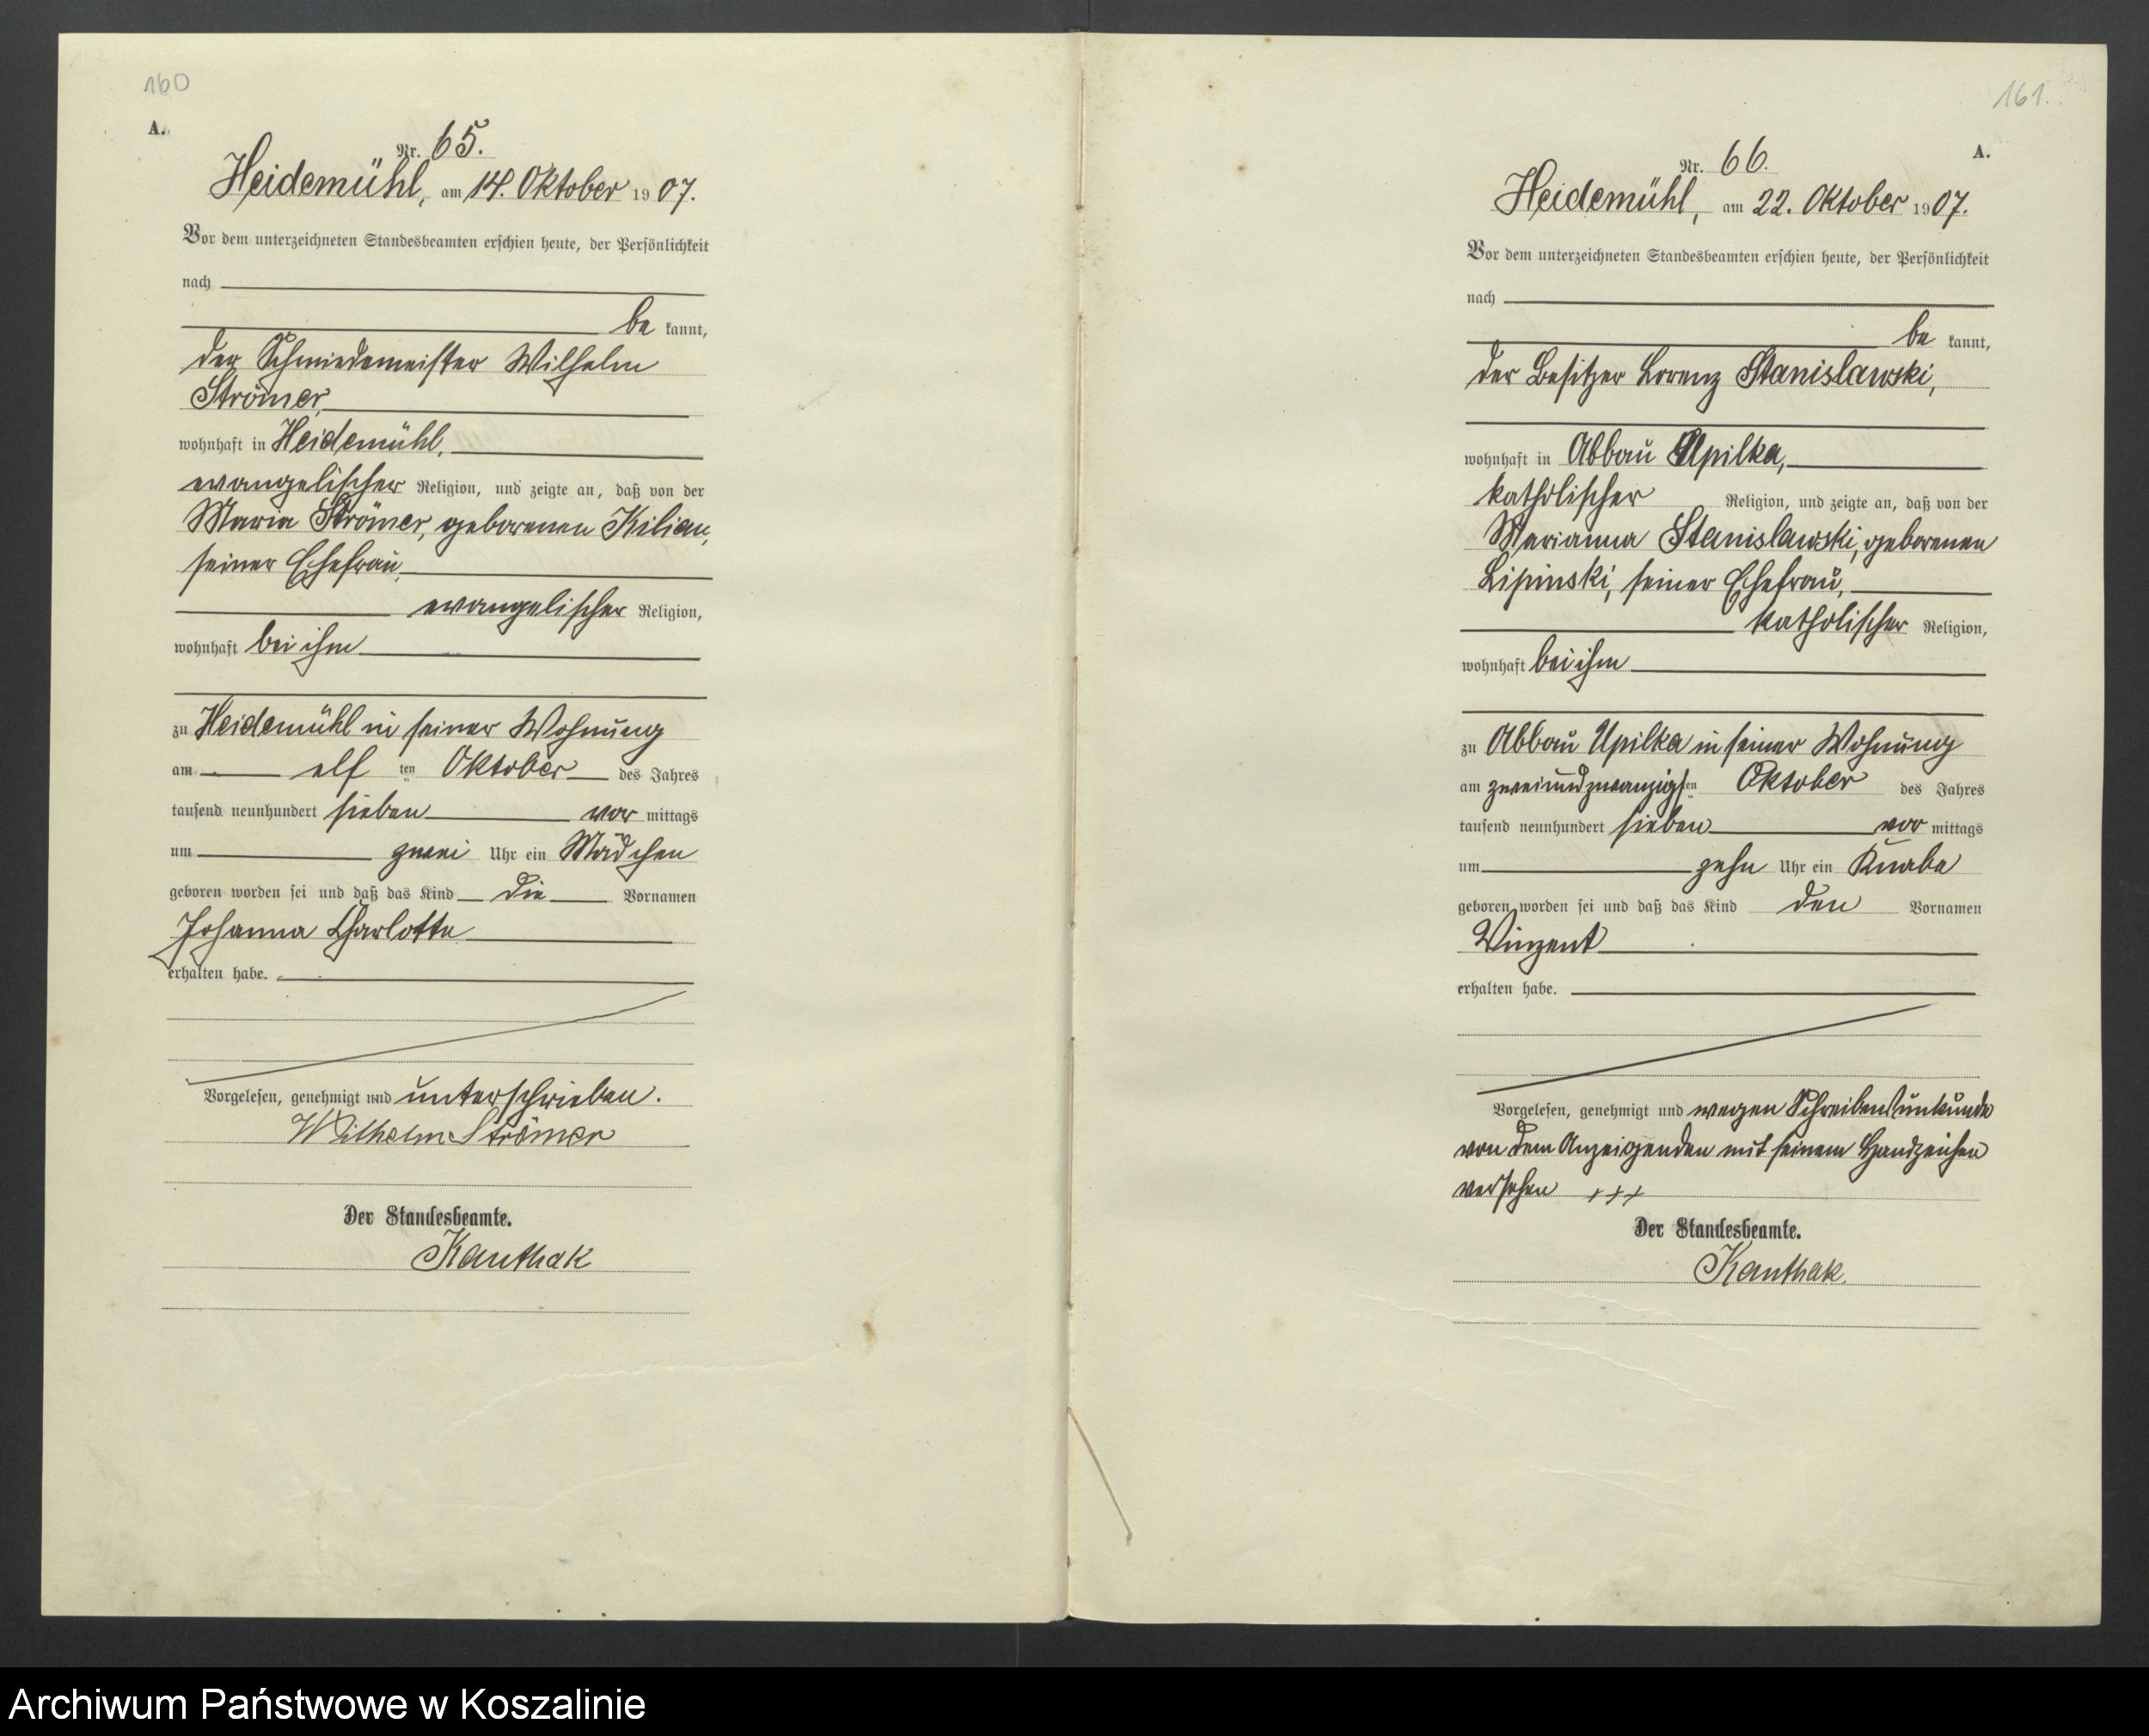 160
A.
Nr. 65.
Heidemühl, am 14. Oktober 1907.
Vor dem unterzeichneten Standesbeamten erschien heute, der Persönlichkeit
nach
be kannt,
der Schmiedemeister Wilhelm
Strömer,
wohnhaft in Heidemühl,
evangelischer Religion, und zeigte an, daß von der
Maria Strömer, geborenen Kilian,
seiner Ehefrau,
evangelischer Religion,
wohnhaft bei ihm
zu Heidemühl in seiner Wohnung
am elf ten Oktober des Jahres
tausend neunhundert sieben vor mittags
um zwei Uhr ein Mädchen
geboren worden sei und daß das Kind die Vornamen
Johanna Charlotte
erhalten habe.
Vorgelesen, genehmigt und unterschrieben.
Wilhelm Strömer
Der Standesbeamte.
Kanthak
161.
A.
Nr. 66.
Heidemühl, am 22. Oktober 1907.
Vor dem unterzeichneten Standesbeamten erschien heute, der Persönlichkeit
nach
be kannt,
der Besitzer Lorenz Stanislawski,
wohnhaft in Abbau Upilka,
katholischer Religion, und zeigte an, daß von der
Marianna Stanislawski, geborenen
Lipinski, seiner Ehefrau,
katholischer Religion,
wohnhaft bei ihm
zu Abbau Upilka in seiner Wohnung
am zweiundzwanzigsten Oktober des Jahres
tausend neunhundert sieben vor mittags
um zehn Uhr ein Knabe
geboren worden sei und daß das Kind den Vornamen
Vinzent
erhalten habe.
Vorgelesen, genehmigt und wegen Schreibensunkunde
von dem Anzeigenden mit seinem Handzeichen
versehen +++
Der Standesbeamte.
Kanthak.
Archiwum Państwowe w Koszalinie